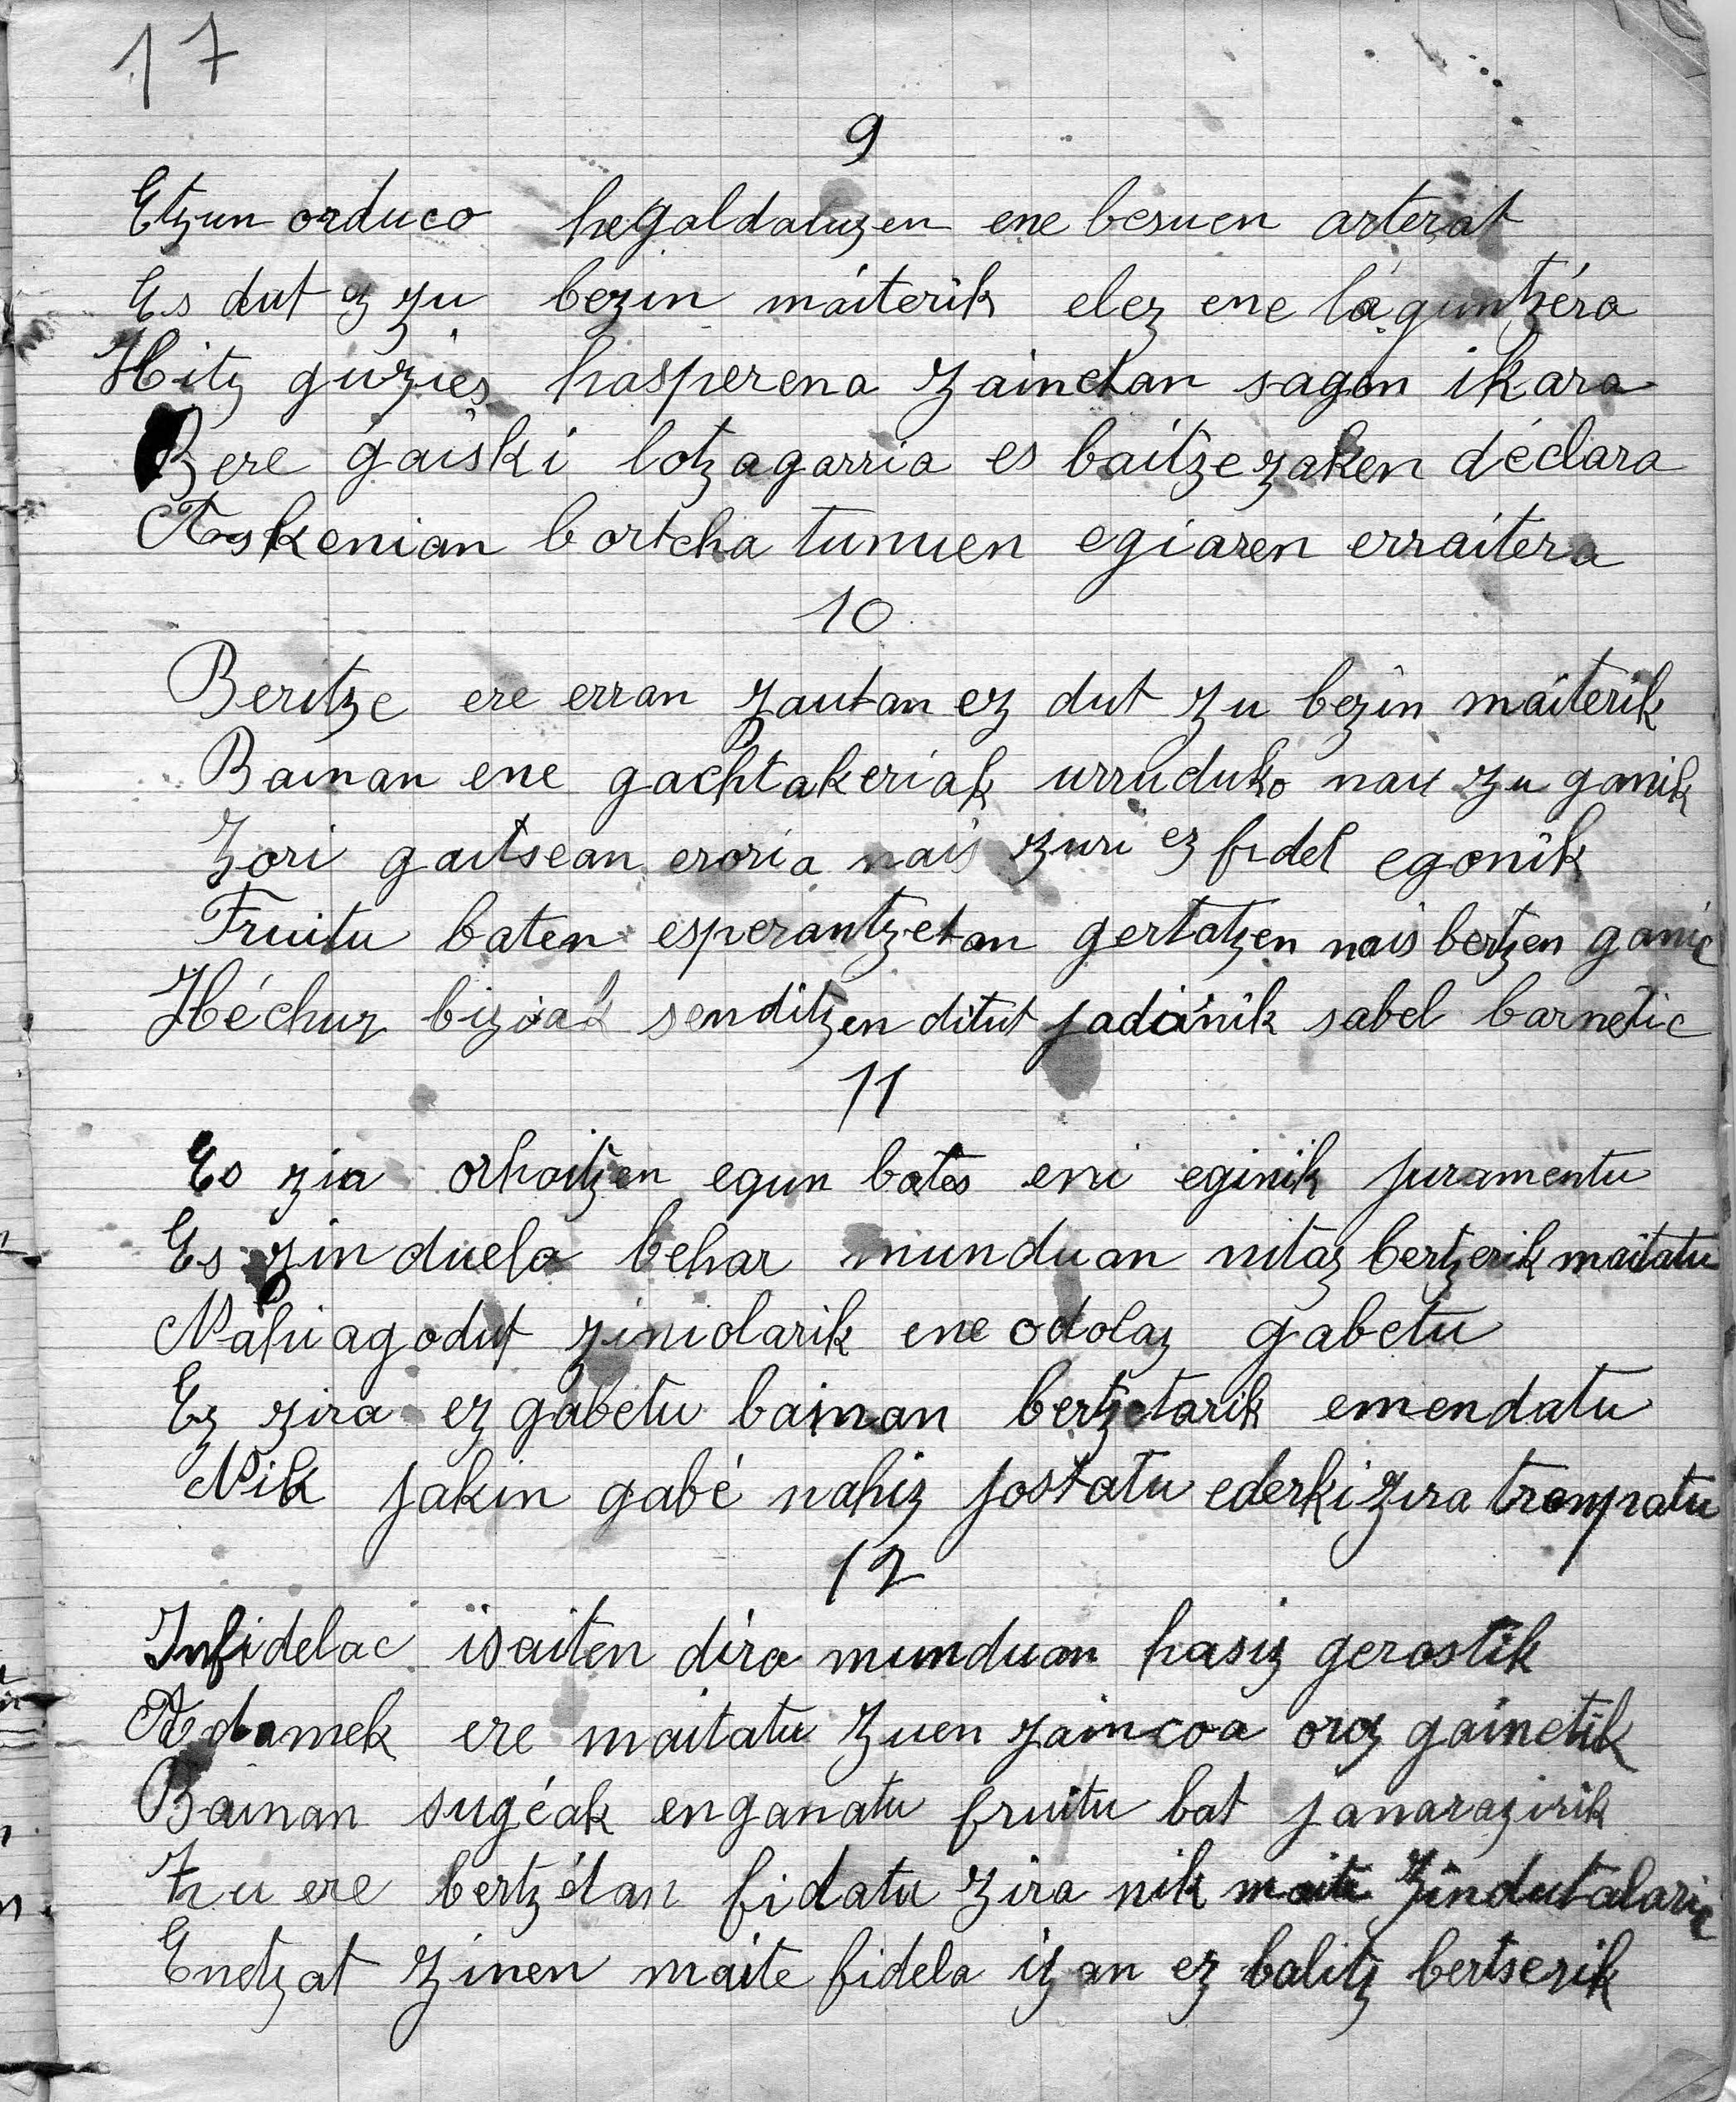 17
9
Etzun orduco hegaldatuzen ene besuen arterat
Es dut ez zu bezin maiterik elez ene laguntzéra
Hitz guzies hasperena zainetan sagon ikara
Bere gaiski lotzagarria es baitzezaken déclara
Askenian bortcha tunuen egiaren erraitera
10
Beritze ere erran zautan ez dut zu bezin maiterik
Bainan ene gachtakeriak urruduko nau zu ganik
Zori gaitsean eroria nais zuri ez fidel egonik
Fruitu baten esperantzetan gertatzen nais bertzen ganic
Héchur biziak senditzen ditut jadanik sabel barnetic
11
Es zia orhoitzen egun batés eni eginik juramentu
Es zinduela behar munduan nitaz bertzerik maitatu
Nahiagodut ziniolarik ene odolaz gabetu
Ez zira ez gabetu bainan bertzetarik emendatu
Nik jakin gabé nahiz jostatu ederki zira trompatu
12
Infidelac isaiten dira munduan hasiz gerostik
Adamek ere maitatu zuen zaincoa oroz gainetik
Bainan sugéak enganatu fruitu bat janarazirik
Zu ere bertzétan fidatu zira nik maite zindutalaric
Enetzat zinen maite fidela izan ez balitz bertserik